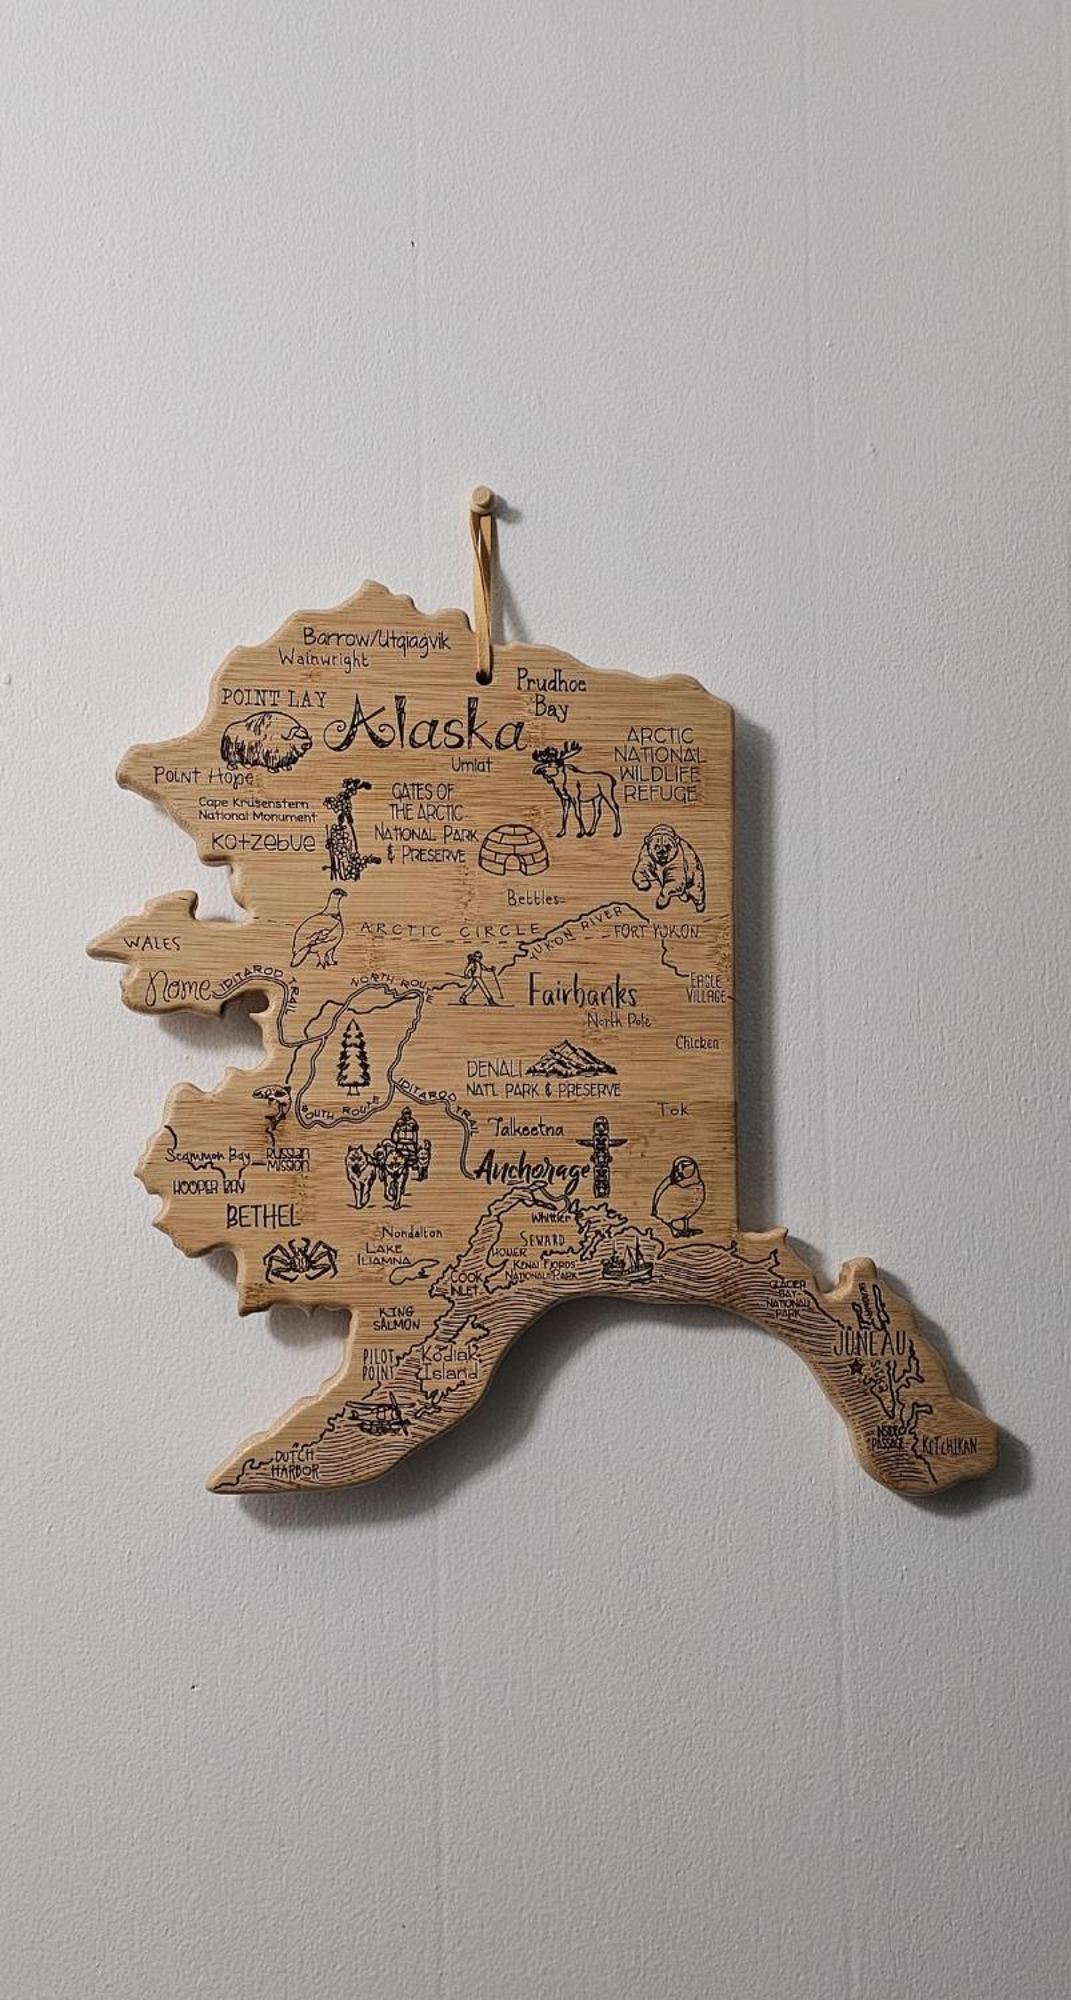 Barrow/Utqiaġvik
Wainwright
Prudhoe
Bay
POINT LAY
Alaska
ARCTIC
NATIONAL
WILDLIFE
REFUGE
Umiat
Point Hope
Cape Krusenstern
National Monument
GATES OF
THE ARCTIC
NATIONAL PARK
& PRESERVE
Kotzebue
Bettles
ARCTIC CIRCLE
YUKON RIVER
FORT YUKON
WALES
Nome
IDITAROD TRAIL
NORTH ROUTE
Fairbanks
EAGLE
VILLAGE
North Pole
Chicken
DENALI
NATL PARK & PRESERVE
SOUTH ROUTE
IDITAROD TRAIL
Tok
Talkeetna
Scammon Bay
RUSSIAN
MISSION
Anchorage
HOOPER BAY
BETHEL
Whittier
Nondalton
SEWARD
LAKE
ILIAMNA
HOMER
KENAI FJORDS
NATIONAL PARK
COOK
INLET
GLACIER
BAY
NATIONAL
PARK
KING
SALMON
JUNEAU
PILOT
POINT
Kodiak
Island
INSIDE
PASSAGE
KETCHIKAN
DUTCH
HARBOR